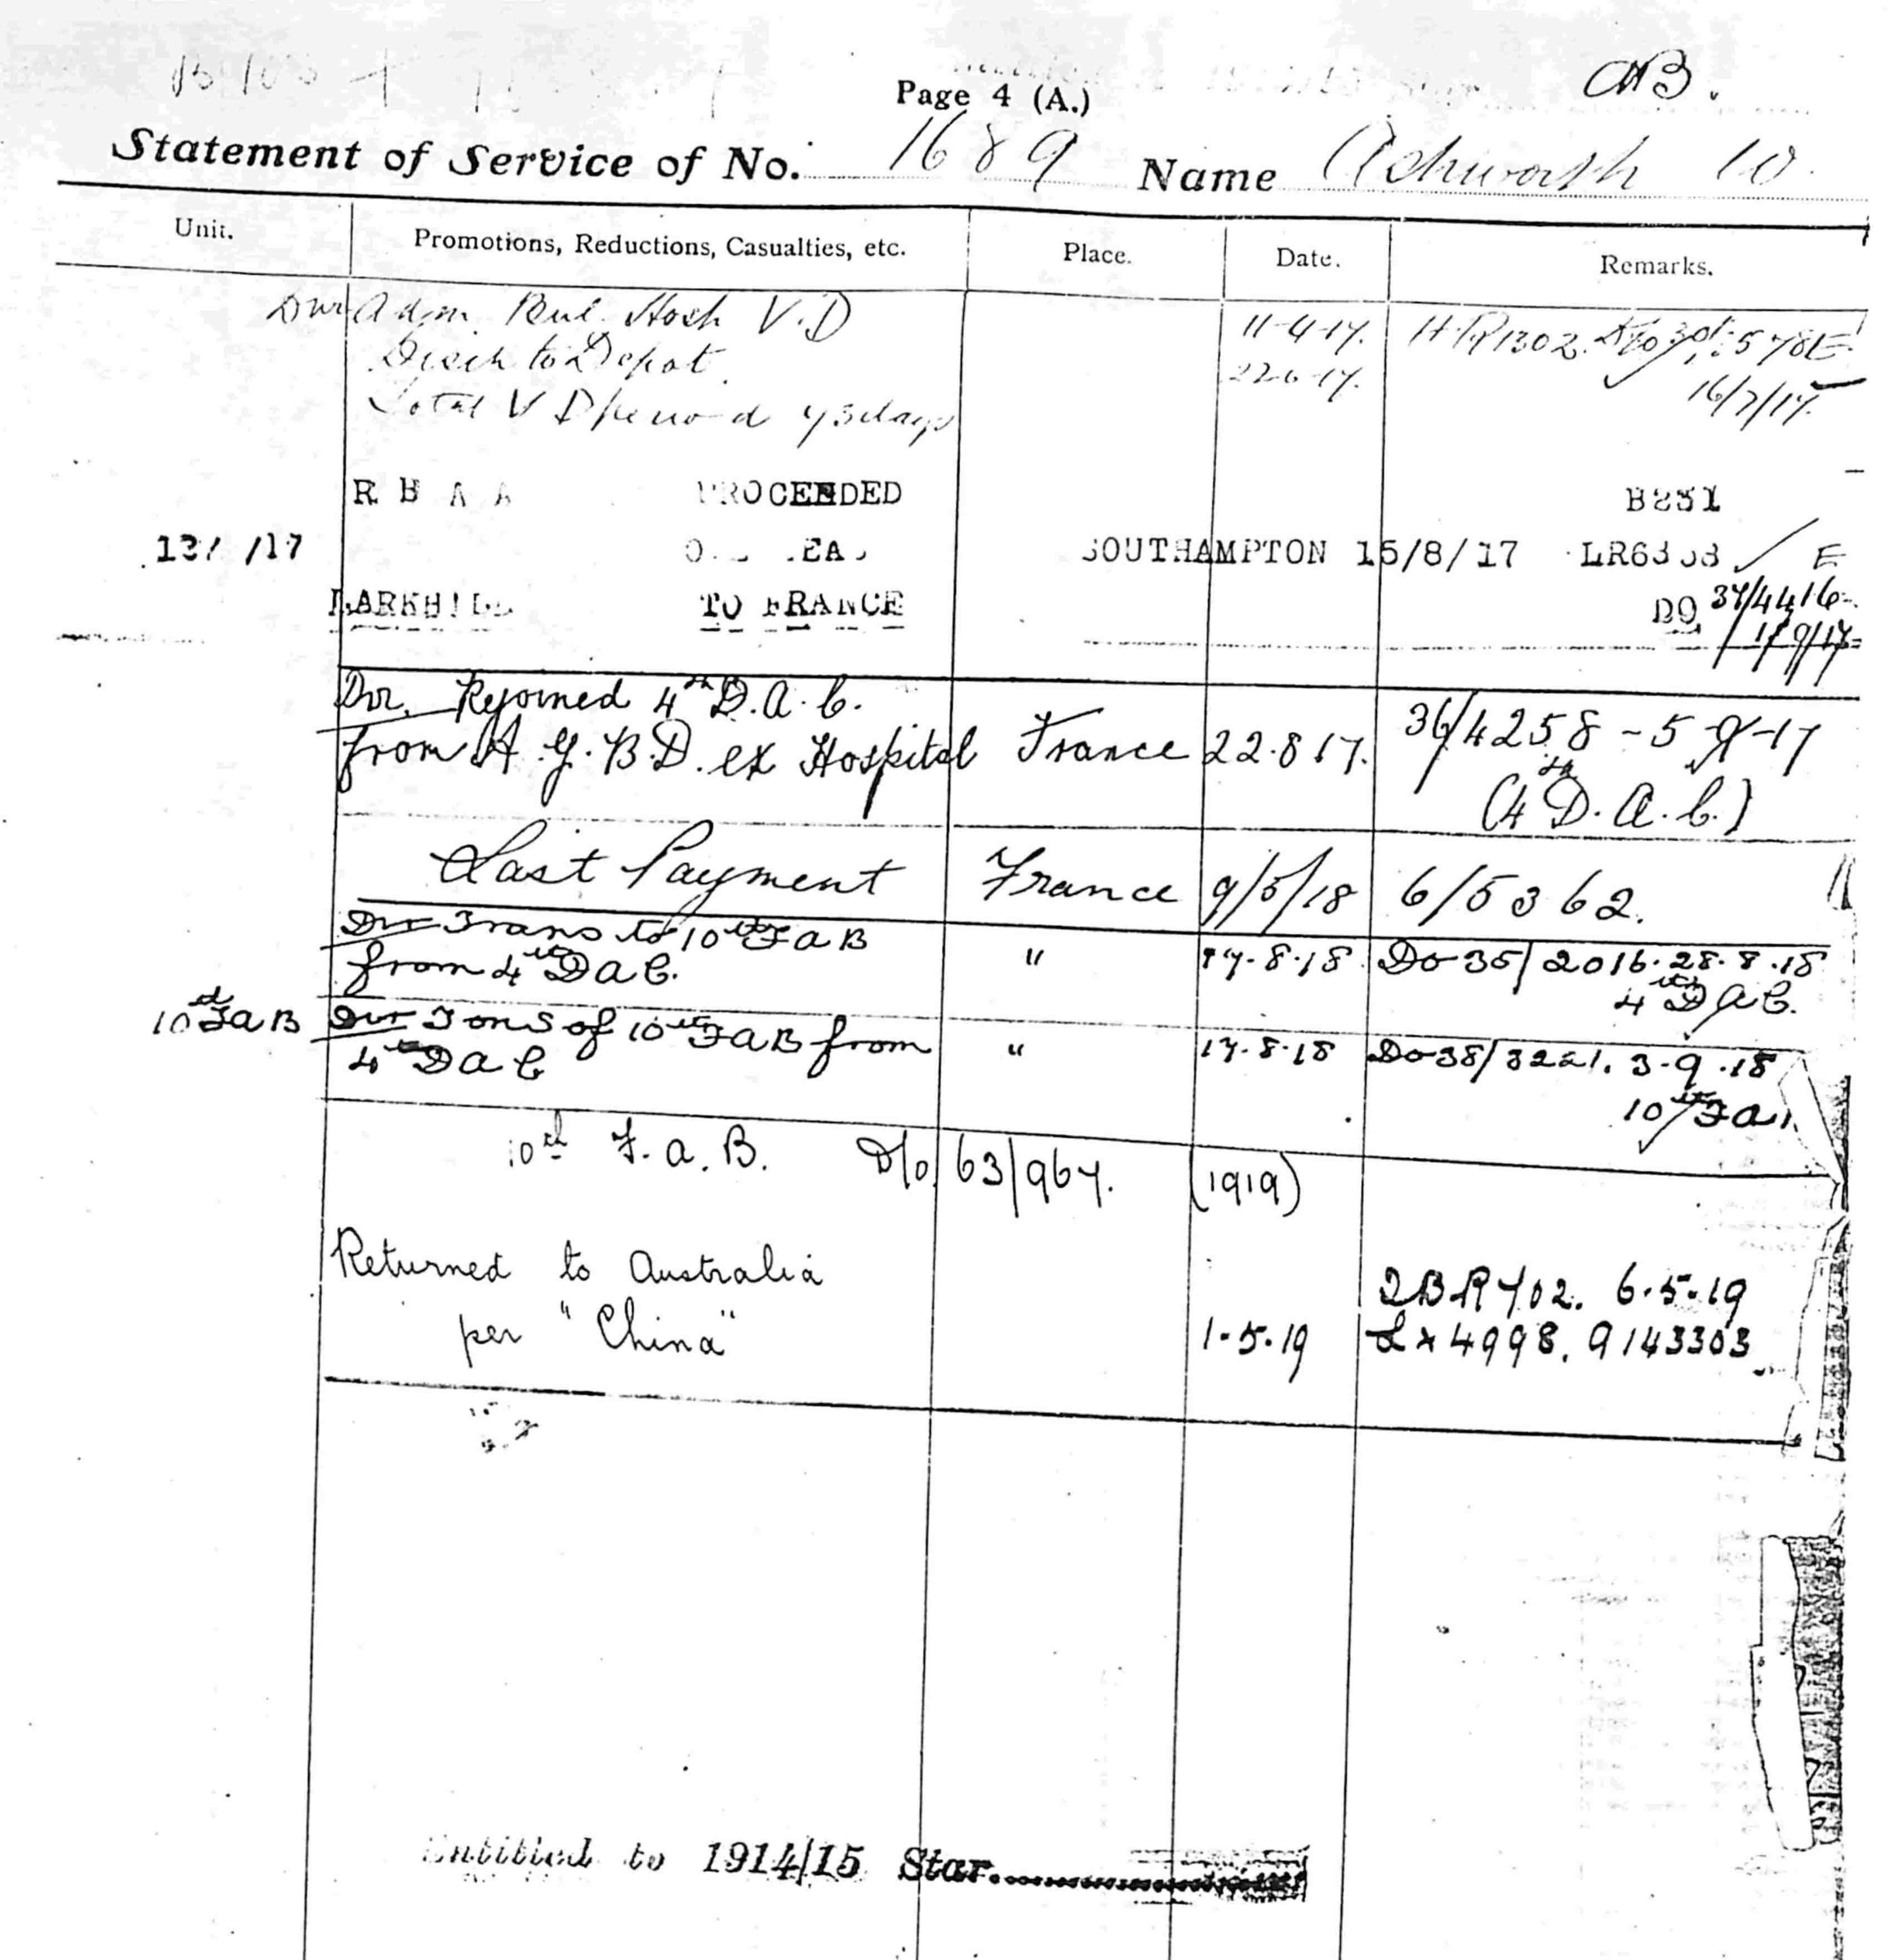 Page 4 (A.)
AB.
Statement of Service of No. 1689 Name Ashworth W.
Unit. Promotions, Reductions, Casualties, etc. Place. Date. Remarks.
Dvr Adm. Bul. Hosp V.D 11-4-17. H.R1302.
Disch to Depot. 22-6-17. 16/7/17.
Total V D period 73 days
R B A A PROCEEDED B281
/17 SOUTHAMPTON 15/8/17 E
LARKHILL TO FRANCE DO 37/4416
1/9/17
Dvr. Rejoined 4th D.A.C.
from A.G.B.D. ex Hospital France 22.8.17. 36/4258-5-9-17
(4th D.A.C.)
Last Payment France 9/5/18 6/5362.
Dvr Trans to 10th FAB " 17-8-18 Do 35/2016. 28.8.18
from 4th DAC. 4th DAC.
10th FAB Dvr T on S of 10th FAB from " 17-8-18 Do 38/3221. 3-9-18
4th DAC 10th FA
10th F.A.B. D/o 63/967. (1919)
Returned to Australia 2BR702. 6.5.19
per "China" 1-5-19 Lx 4998. 9143303
Entitled to 1914/15 Star